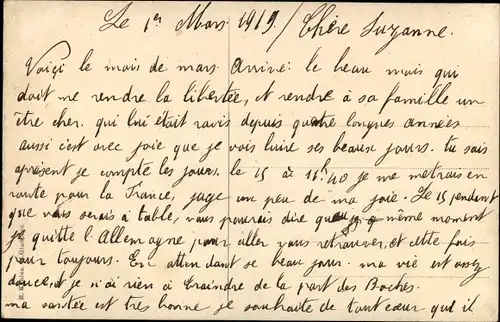 Le 1er Mars 1919. / Chère Suzanne.
Voiçi le mois de mars. Arrivé: le beau mois qui
doit me rendre la libertée, et rendre à sa famille un
être cher. qui lui était ravis depuis quatre longues années
aussi c'est avec joie que je vois luire ses beaux jours. tu sais
apresent je compte les jours. le 15 à 11h40 je me metrais en
route pour la France, juge un peu de ma joie. Le 15 pendent
que vous serais à table, vous pourais dire que même moment
je quitte l'Allemagne pour aller vous retrouver, et cette fois
pour toujours. En attendant se beau jour. ma vie est assez
douce, et je n'ai rien à craindre de la part des Boches.
ma santée est très bonne je souhaite de tout cœur qu il